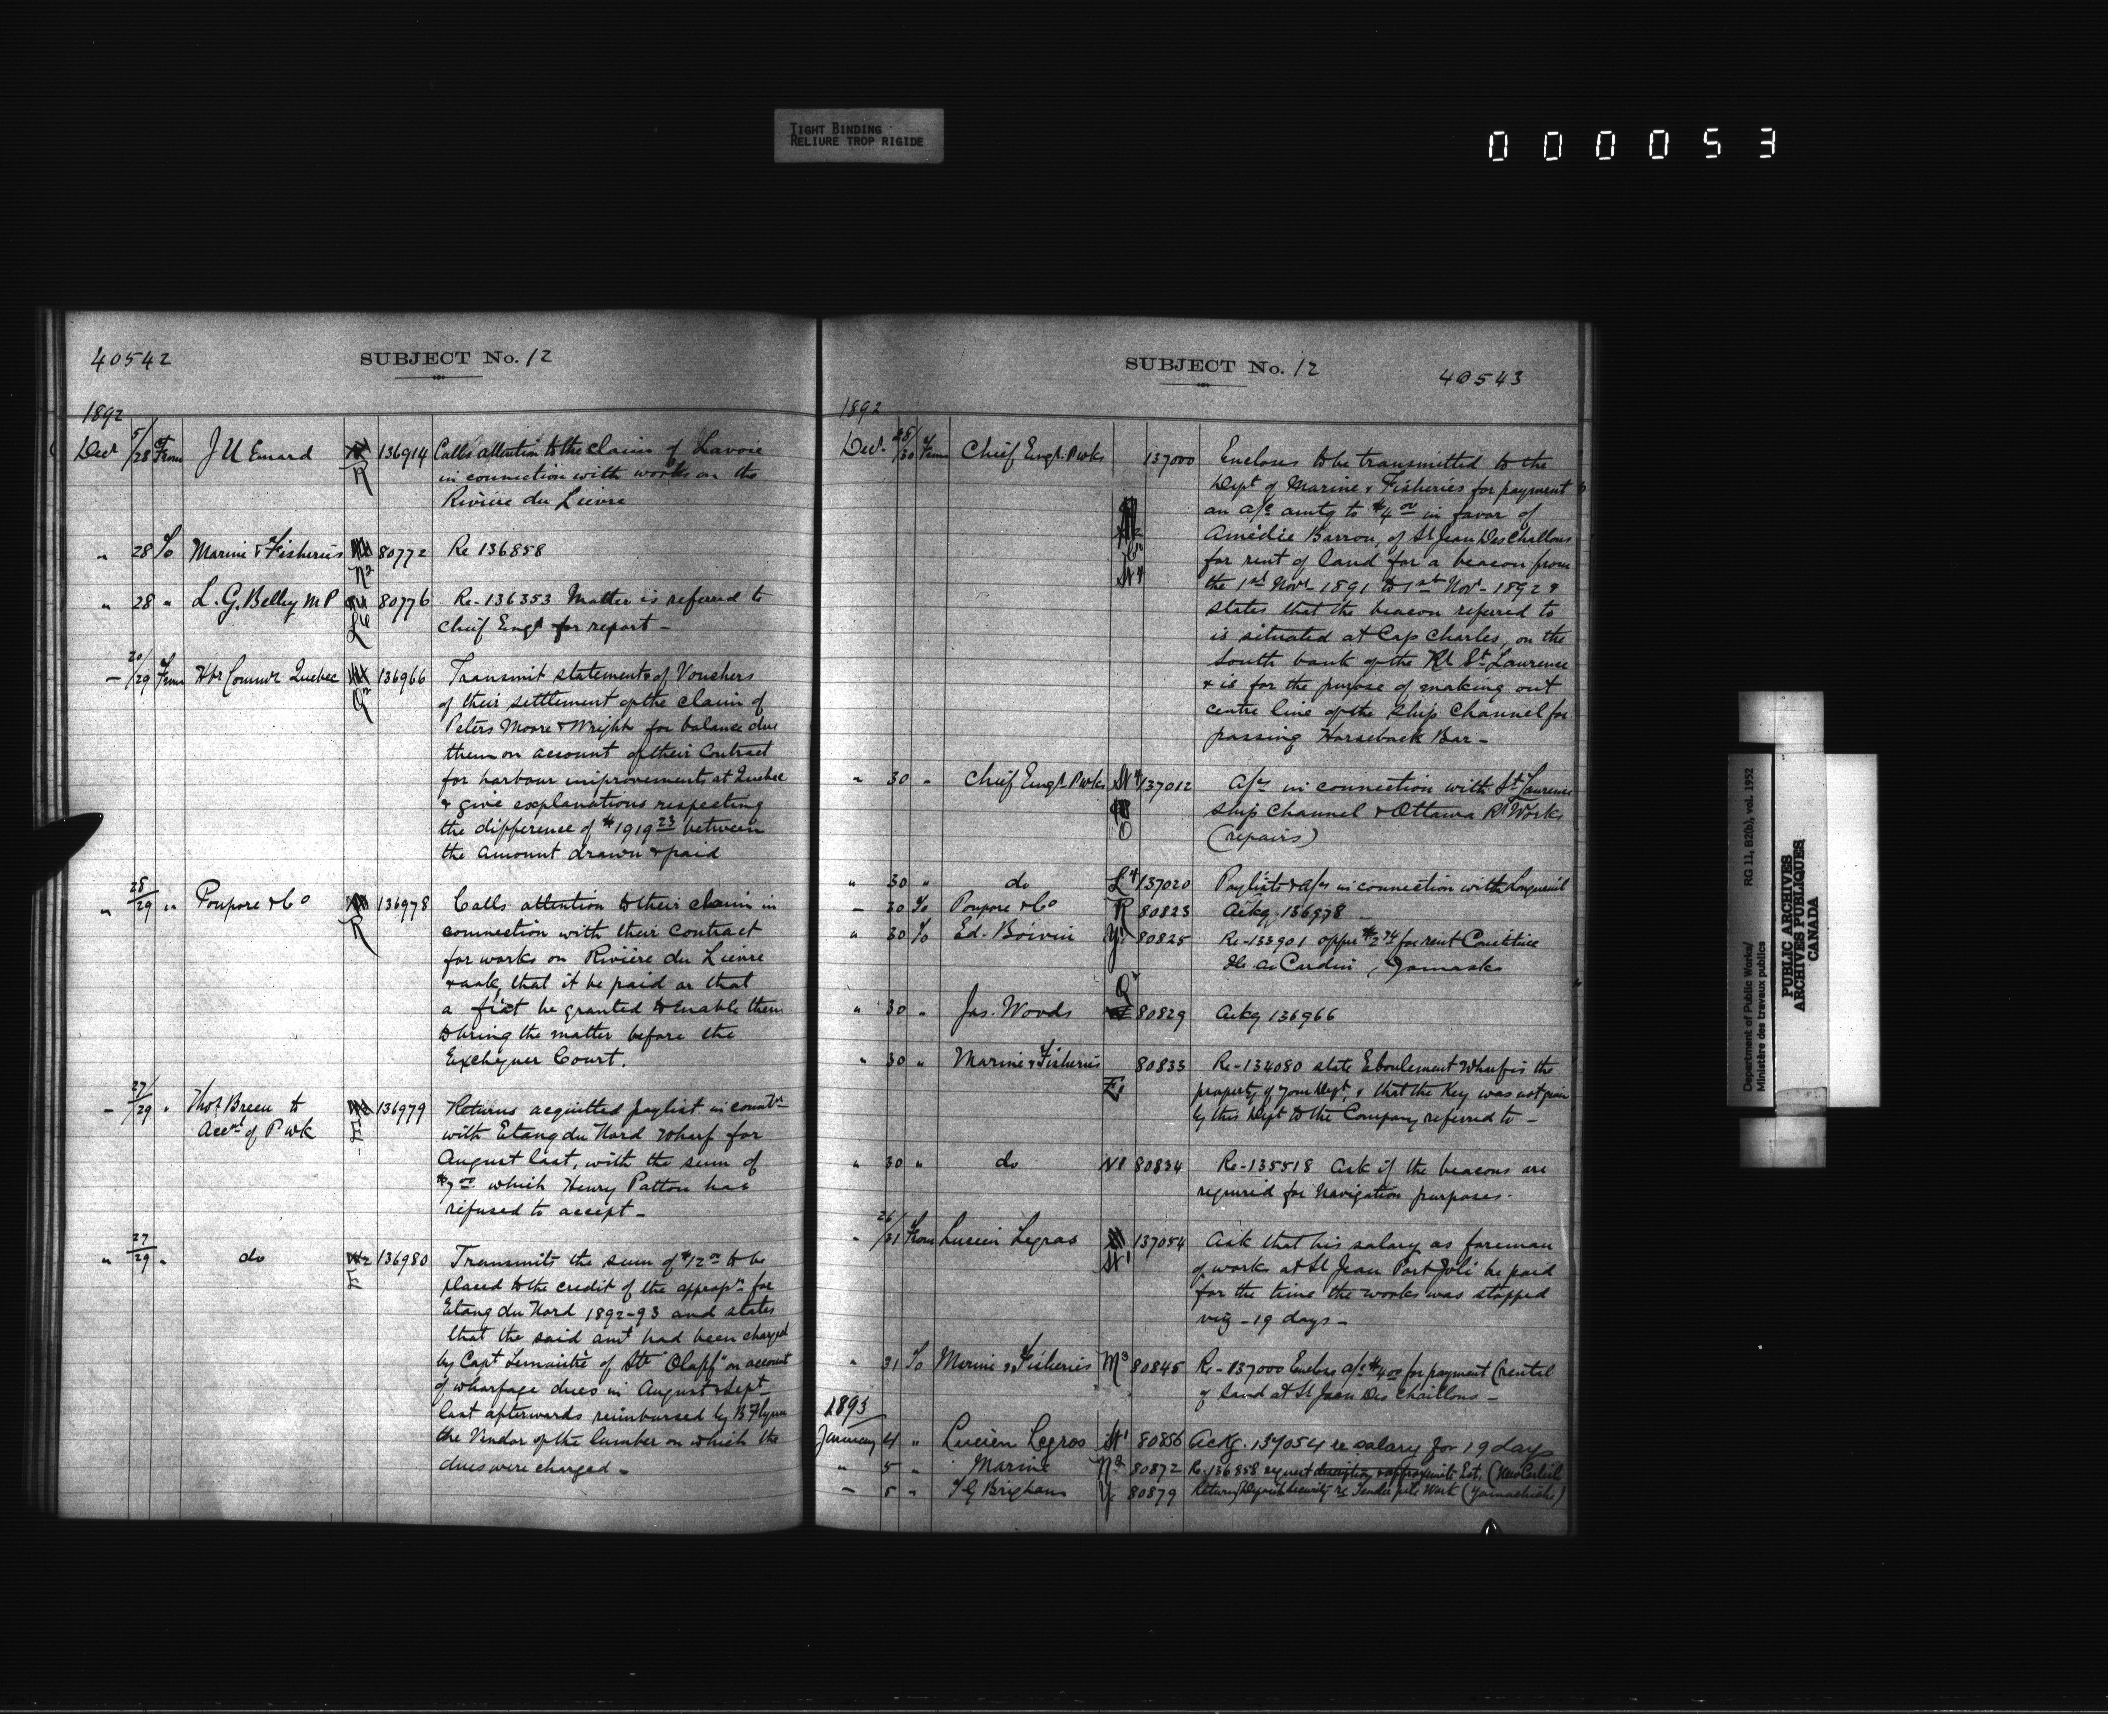 TIGHT BINDING
RELIURE TROP RIGIDE
000053
40542
SUBJECT No. 12
1892
Decr 5/28 From J U Emard R 136914 Calls attention to the claim of Lavoie
in connection with works on the
Rivière du Lievre
" 28 To Marine & Fisheries N2 80772 Re 136858
" 28 " L. G. Belley M P 80776 Re-136353 Matter is referred to
Chief Engr for report -
- 20/29 From Hbr Commr Quebec Q2 136966 Transmit statements of Vouchers
of their settlement of the claim of
Peters Moore & Wright for balance due
them on account of their Contract
for harbour improvements at Quebec
& give explanations respecting
the difference of $1919 23 between
the amount drawn & paid
" 28/29 " Poupore & Co R 136978 Calls attention to their claim in
connection with their contract
for works on Rivière du Lievre
& ask that it be paid or that
a fiat be granted to enable them
to bring the matter before the
Exchequer Court.
- 27/29 " Thos Breen to E 136979 Returns acquitted paylist in connt'n
Acct of P wk with Etang du Nord wharf for
August last, with the sum of
$7 00 which Henry Patton has
refused to accept -
" 27/29 " do E 136980 Transmits the sum of $12 00 to be
placed to the credit of the approp'n for
Etang du Nord 1892-93 and states
that the said amt had been charged
by Capt Lemaistre of Str "Olaff" on account
of wharfage dues in August & Sept
last afterwards reimbursed by B Flynn
the Vendor of the lumber on which the
dues were charged -
SUBJECT No. 12
40543
1892
Decr 28/30 From Chief Engr P wks 137000 Encloses to be transmitted to the
Dept of Marine & Fisheries for payment
an a/c amtg to $4 00 in favor of
Amédée Barron, of St Jean Des Chaillons
for rent of land for a beacon from
the 1st Novr 1891 to 1st Novr 1892 &
states that the beacon referred to
is situated at Cap Charles, on the
South bank of the Rr St Lawrence
& is for the purpose of making out
centre line of the ship Channel for
passing Horseback Bar -
" 30 " Chief Engr P wks St 4 137012 A/cs in connection with St Lawrence
O Ship Channel & Ottawa Rr Works
(repairs)
" 30 " do L4 137020 Paylists & a/cs in connection with Longueuil
- 30 To Poupore & Co R 80823 Ackg. 136978 -
" 30 To Ed. Boivin Y1 80825 Re-133901 offer $2 for rent
Cardin, Yamaska
" 30 " Jas. Woods Q2 80829 Ackg 136966
" 30 " Marine & Fisheries E1 80833 Re-134080 state Eboulement Wharf is the
property of your Dept, & that the Key was not given
by this Dept to the Company referred to -
" 30 " do 80834 Re-135518 Ask if the beacons are
required for Navigation purposes -
" 26/31 From Lucien Legros St 1 137054 Ask that his salary as foreman
of works at St Jean Port Joli be paid
for the time the works was stopped
viz - 19 days -
" 31 To Marine & Fisheries M3 80845 Re-137000 Enclose a/c $4 00 for payment (rental
of land at St Jean Des Chaillons -
1893
January 4 " Lucien Legros St 1 80856 Ackg. 137054 re salary for 19 days
" 5 " Marine N2 80872 Re-136858 request description & approximate Est. (New Carlisle
- 5 " T G Brigham Y 80879 Return Deposit Security re Tender pile Work (Yamachiche)
Department of Public Works/
Ministère des travaux publics
RG 11, B2(b), vol. 1952
PUBLIC ARCHIVES
ARCHIVES PUBLIQUES
CANADA